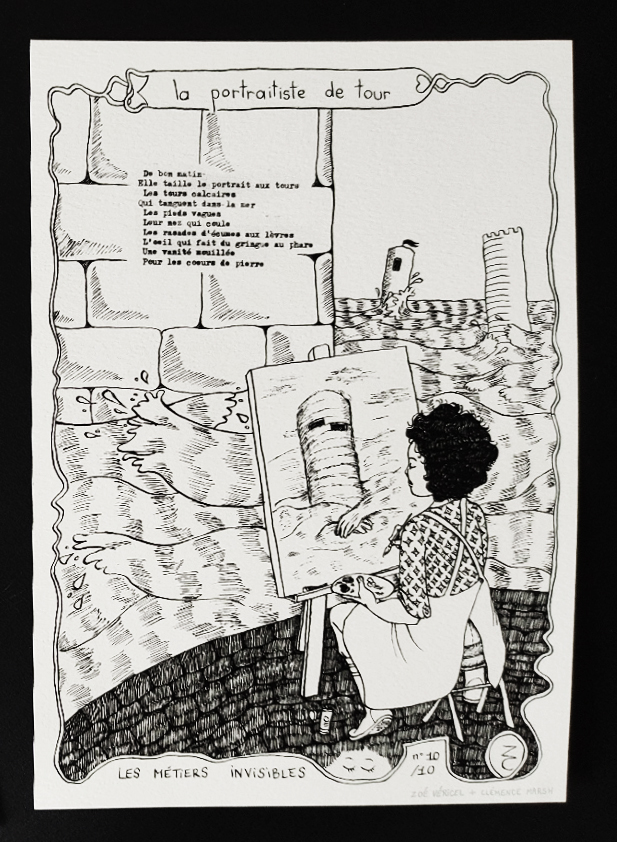 la portraitiste de tour
De bon matin
Elle taille le portrait aux tours
Les tours calcaires
Qui tanguent dans la mer
Les pieds vagues
Leur nez qui coule
Les rasades d'écumes aux lèvres
L'oeil qui fait du gringue au phare
Une vanité mouillée
Pour les coeurs de pierre
LES MÉTIERS INVISIBLES
n° 10
/10
ZOÉ + CLÉMENCE